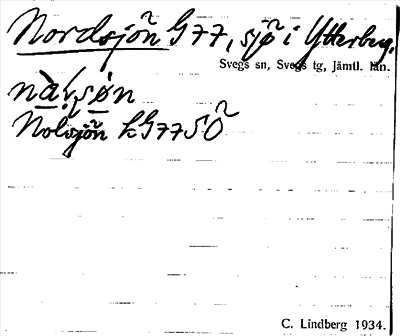 Nordsjön G77, sjö i Ytterberg,
Svegs sn, Svegs tg, Jämtl. län.
Nolsjön kG77SÖ
C. Lindberg 1934.